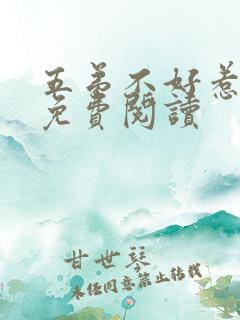 五弟不好惹
免費閱讀
甘世琴
未经同意禁止转载